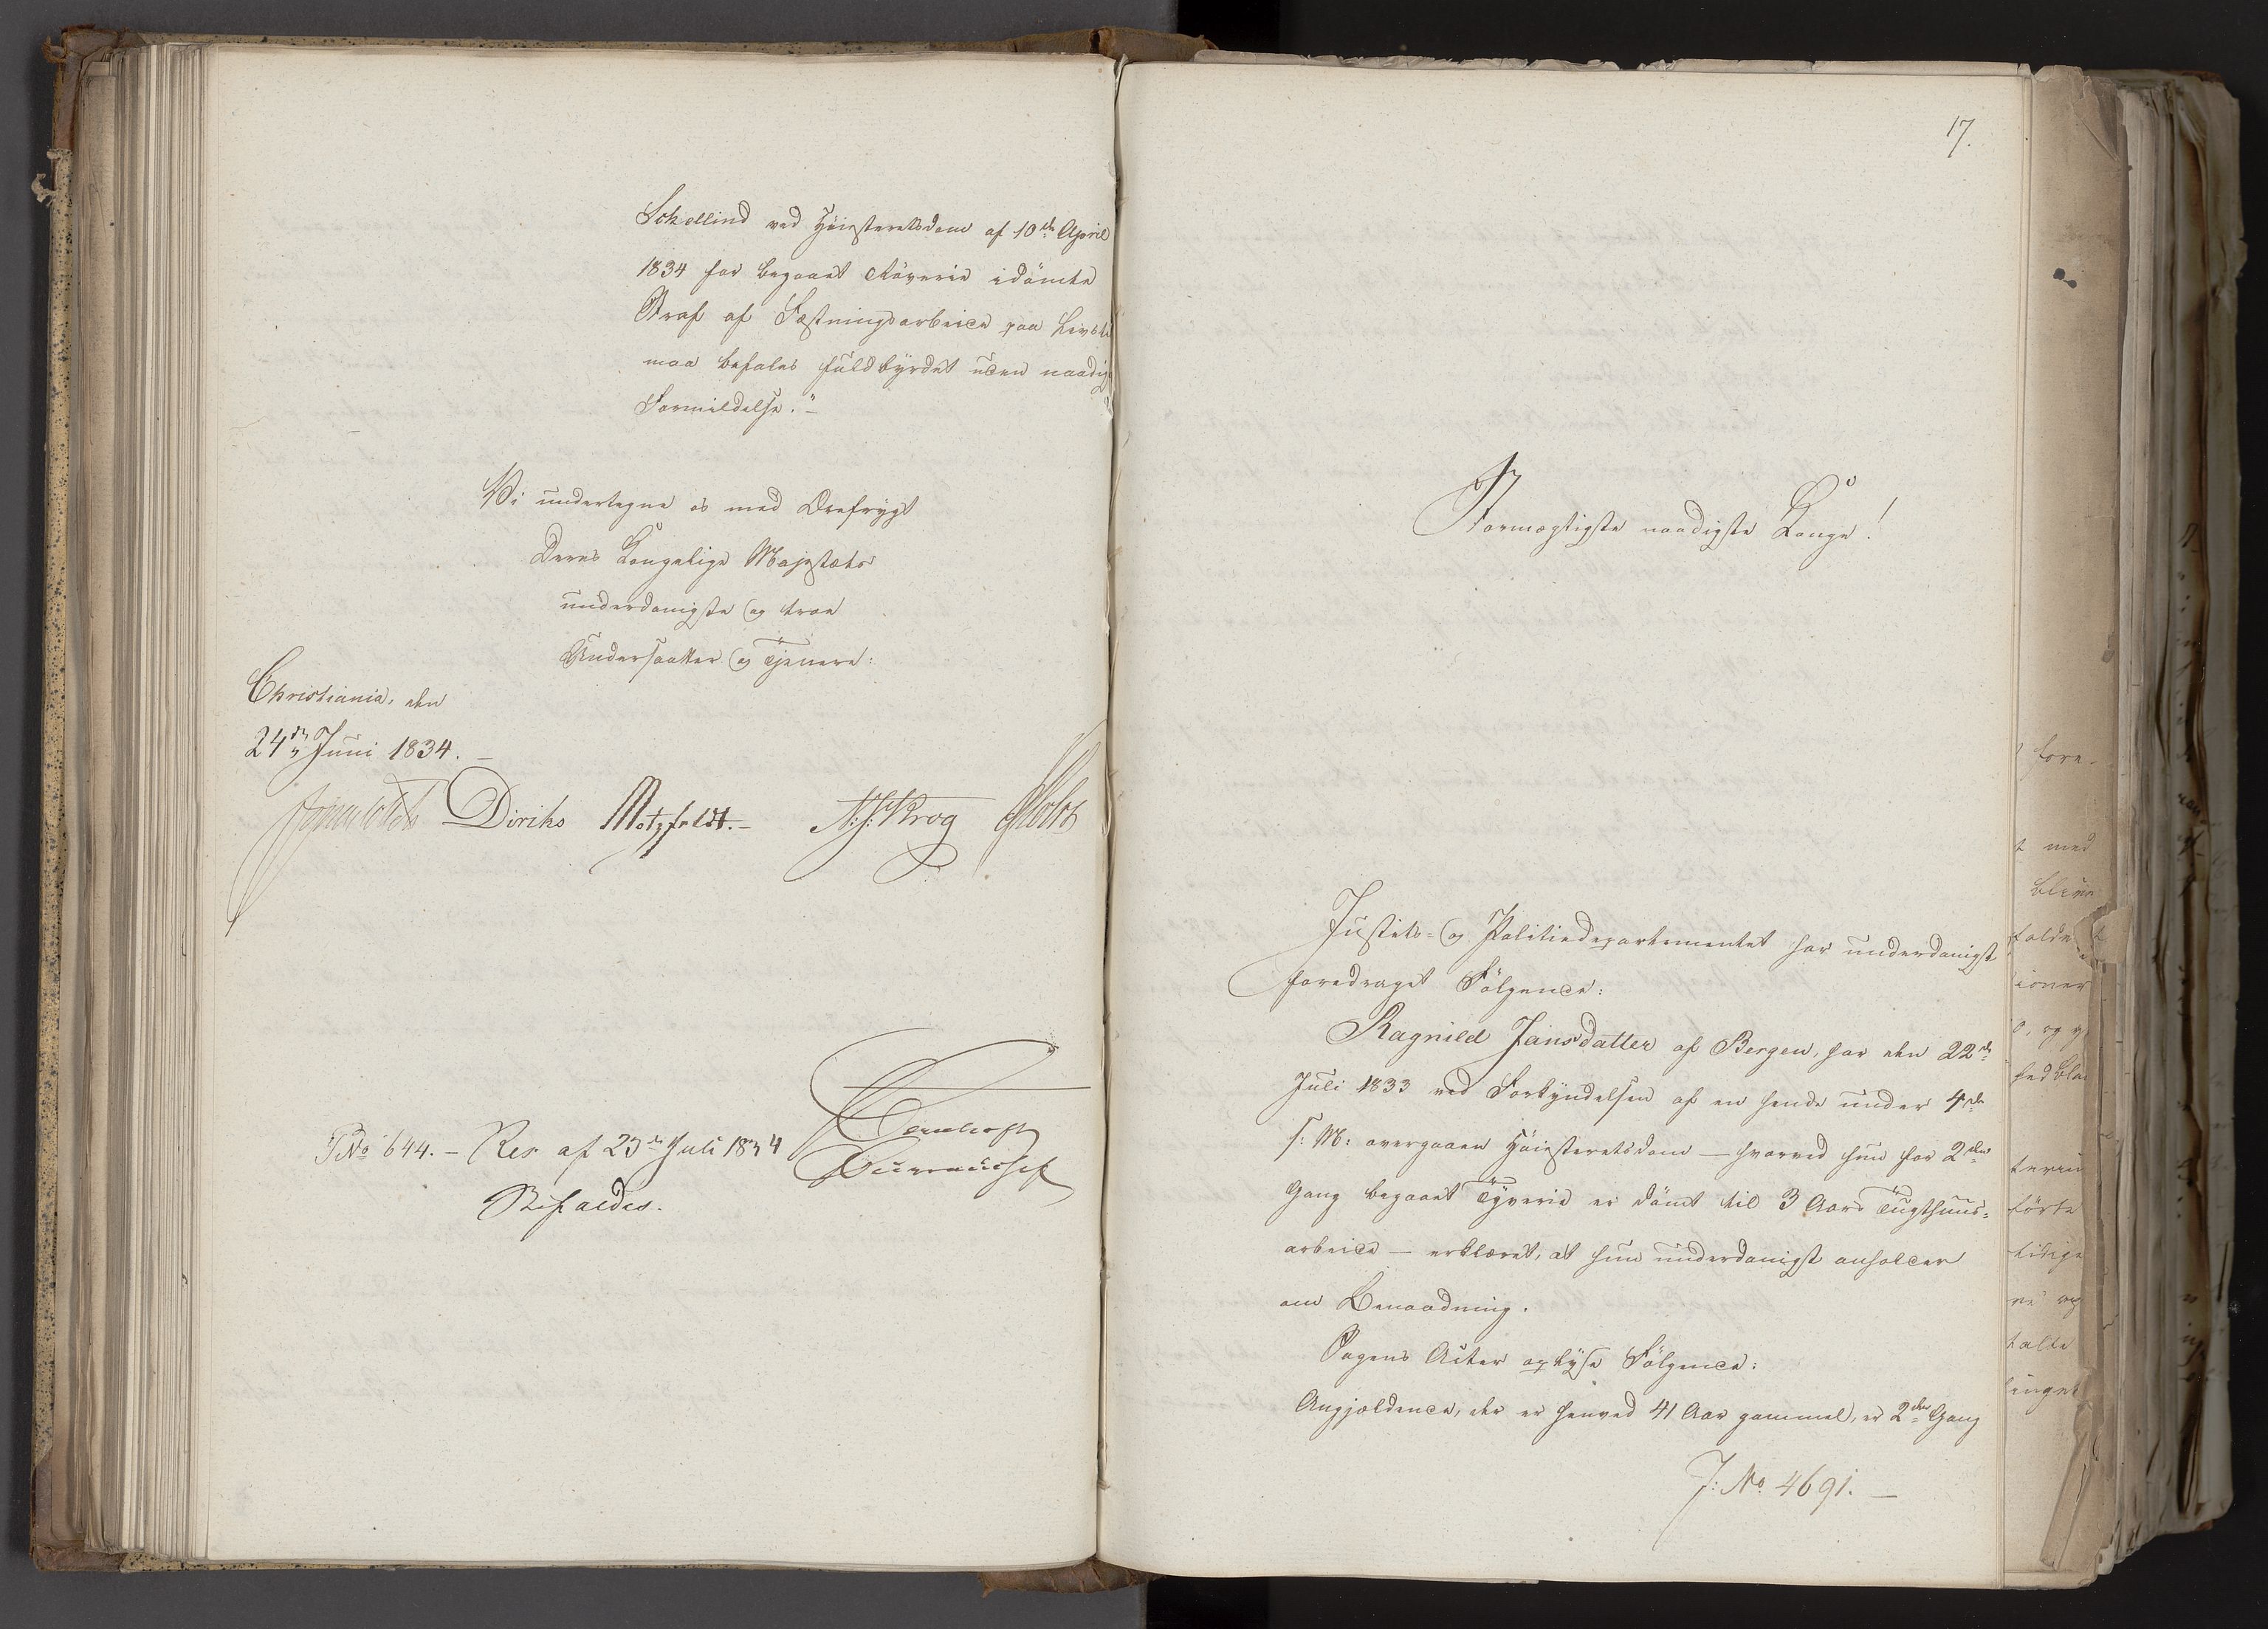 Schellind ved Høiesteretsdom af 10de April
1834 for begaaet Røverie idømte
Straf af Fæstningsarbeide paa Livstid
maa befales fuldbyrdet uden naadig
Formildelse."-
Vi undertegne os med Ærefrygt
Deres Kongelige Majestæts
underdanigste og troe
Undersaatter og Tjenere:
Christiania, den
24de Juni 1834.-
Diriks Motzfeldt.- N:J:Krog Holst
PNo 644. - Res. af 23de Juli 1834
Bifaldes.
17.
Stormægtigste naadigste Konge!
Justits- og Politiedepartementet har underdanigst
foredraget Følgende:
Ragnild Jansdatter af Bergen, har den 22de
Juli 1833 ved Forkyndelsen af en hende under 4de
s: M: overgaaen Høiesteretsdom - hvorved hun for 2den
Gang begaaet Tyverie er dømt til 3 Aars Tugthuus-
arbeide - erklæret, at hun underdanigst anholder
om Benaadning.
Sagens Acter oplyse Følgende:
Angjældende, der er henved 41 Aar gammel, er 2den Gang
J: No. 4691. -